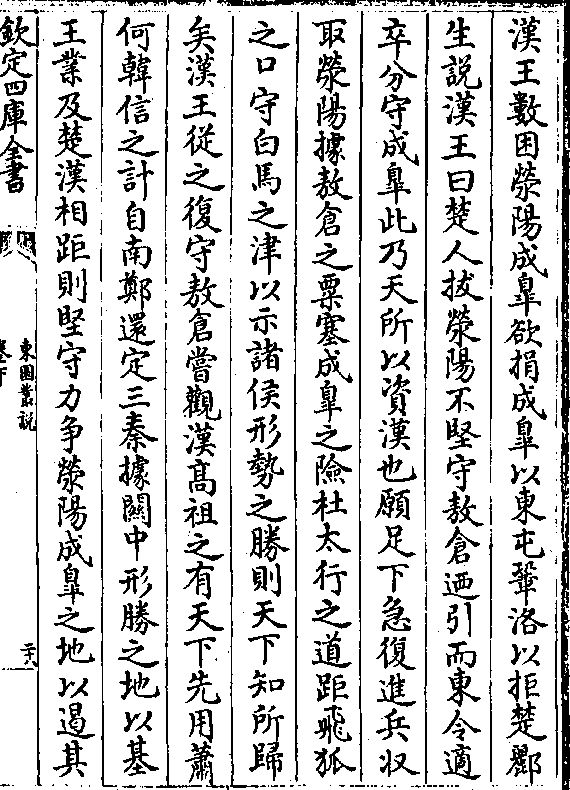 漢王數困滎陽成臯欲捐成臯以東屯鞏洛以拒楚酈
生説漢王曰楚人拔滎陽不堅守敖倉迺引而東令適
卒分守成臯此乃天所以資漢也願足下急復進兵收
取滎陽據敖倉之粟塞成臯之險杜太行之道距飛狐
之口守白馬之津以示諸侯形勢之勝則天下知所歸
矣漢王從之復守敖倉嘗觀漢髙祖之有天下先用蕭
何韓信之計自南鄭還定三秦據關中形勝之地以基
王業及楚漢相距則堅守力争滎陽成臯之地以遏其
欽定四庫全書
東園叢説
卷下
二六